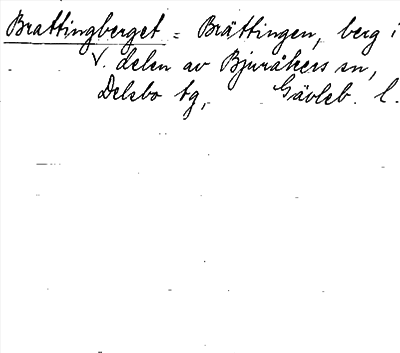 Brattingberget = Brättingen, berg i
V. delen av Bjuråkers sn,
Delsbo tg, Gävleb. l.